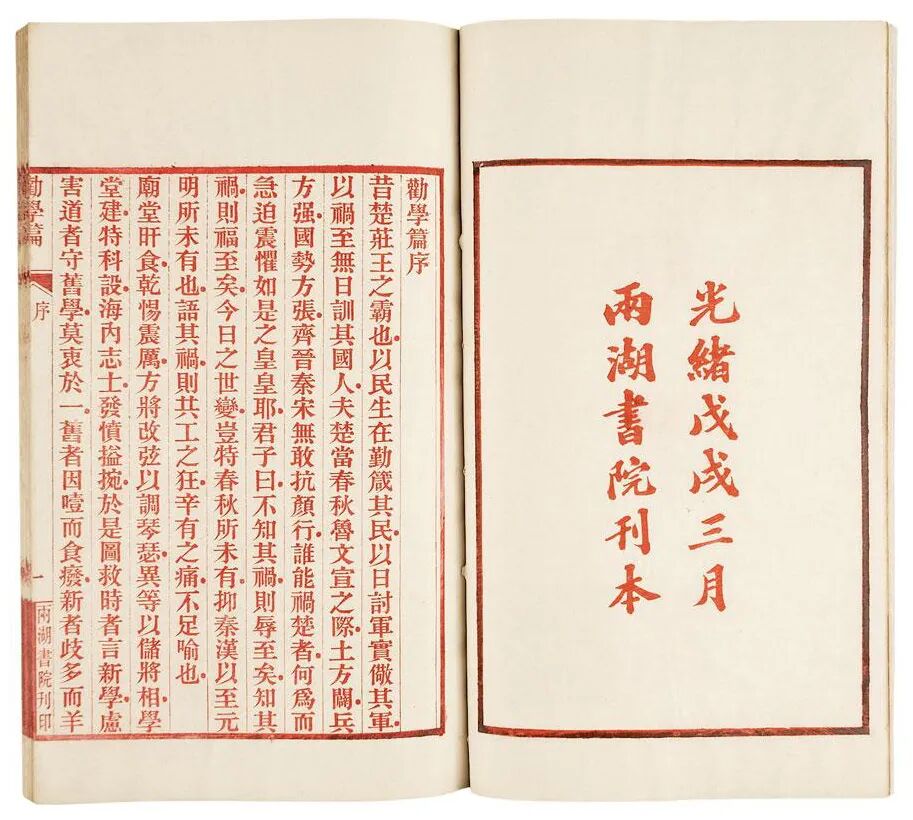 光緒戊戌三月
兩湖書院刊本
勸學篇序
昔楚莊王之霸也。以民生在勤箴其民。以日討軍實儆其軍。
以禍至無日訓其國人。夫楚當春秋魯文宣之際。土方闢。兵
方强。國勢方張。齊晉秦宋無敢抗顏行。誰能禍楚者。何爲而
急迫震懼如是之皇皇耶。君子曰。不知其禍。則辱至矣。知其
禍。則福至矣。今日之世變。豈特春秋所未有。抑秦漢以至元
明所未有也。語其禍。則共工之狂。辛有之痛。不足喻也。
廟堂旰食。乾惕震厲。方將改弦以調琴瑟。異等以儲將相。學
堂建。特科設。海內志士。發憤搤捥。於是圖救時者言新學。慮
害道者守舊學。莫衷於一。舊者因噎而食廢。新者歧多而羊
勸學篇
序
一
兩湖書院刊印